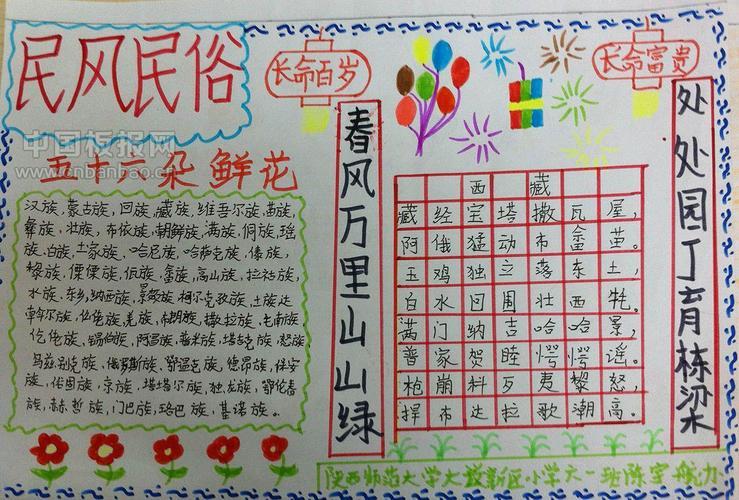 民风民俗
中国板报网
www.cnbanbao.cn
五十一朵鲜花
汉族,蒙古族,回族,藏族,维吾尔族,苗族,
彝族,壮族,布依族,朝鲜族,满族,侗族,瑶
族,白族,土家族,哈尼族,哈萨克族,傣族,
黎族,傈僳族,佤族,畲族,高山族,拉祜族,
水族,东乡,纳西族,景颇族,柯尔克孜族,土族,达
斡尔族,仫佬族,羌族,布朗族,撒拉族,毛南族,
仡佬族,锡伯族,阿昌族,普米族,塔吉克族,怒族,
乌兹别克族,俄罗斯族,鄂温克族,德昂族,保安
族,裕固族,京族,塔塔尔族,独龙族,鄂伦春
族,赫哲族,门巴族,珞巴族,基诺族。
长命百岁
长命富贵
春风万里山山绿
西藏
藏经宝塔撒瓦屋,
阿俄猛动布畲苗。
玉鸡独立落东土,
白水回围壮西牤。
满门纳吉哈哈景,
普家贺睦愕愕谣。
枪崩料歹夷黎怒,
捍布达拉歌潮高。
处处园丁育栋梁
陕西师范大学大教新区小学六一班陈宇航力